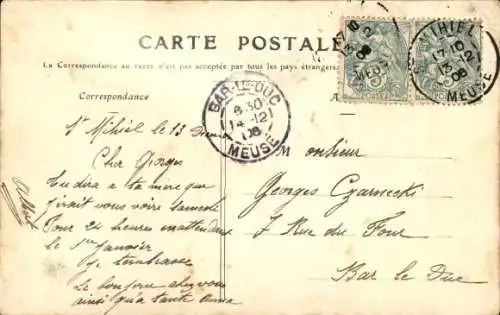 CARTE POSTALE
La Correspondance au recto n'est pas acceptée par tous les pays étrangers
Correspondance
A
17 10
13 12
08
MEUSE
IHIEL
17 10
13 12
08
MEUSE
BAR-LE-DUC
6 30
14 12
08
MEUSE
St Mihiel le 13
Cher Georges
Tu dira a ta mère que
j'irait vous voire samedi
Pour 24 heures
le 1er Janvier
Je t'embrasse
Le bonjour chez vous
ainsi qu'a tante Anna
Albert
Monsieur
Georges Czarnecki
7 Rue du Four
Bar le Duc